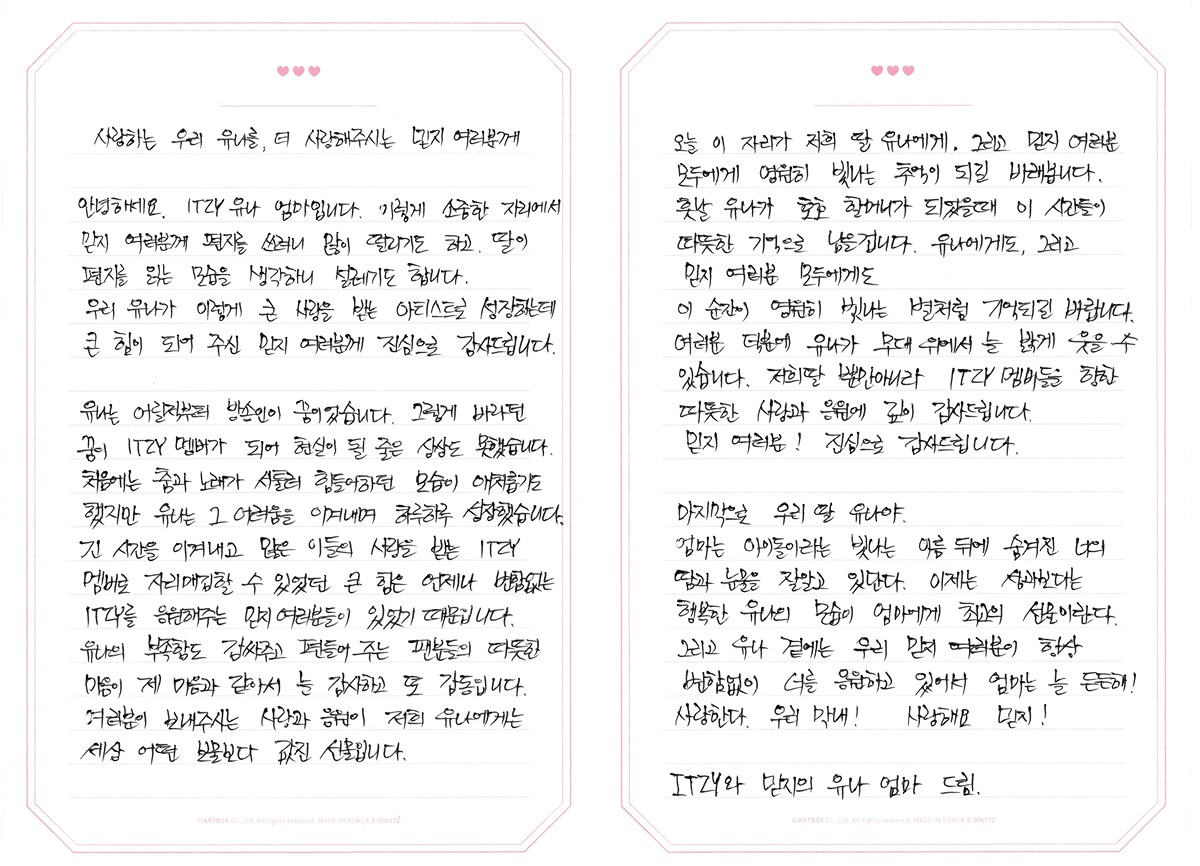 사랑하는 우리 유나를, 더 사랑해주시는 믿지 여러분께
안녕하세요. ITZY 유나 엄마입니다. 이렇게 소중한 자리에서
믿지 여러분께 편지를 쓰려니 많이 떨리기도 하고. 딸이
편지를 읽는 모습을 생각하니 설레기도 합니다.
우리 유나가 이렇게 큰 사랑을 받는 아티스트로 성장하는데
큰 힘이 되어 주신 믿지 여러분께 진심으로 감사드립니다.
유나는 어릴적부터 방송인이 꿈이었습니다. 그렇게 바라던
꿈이 ITZY 멤버가 되어 현실이 될 줄은 상상도 못했습니다.
처음에는 춤과 노래가 서툴러 힘들어하던 모습이 애처롭기도
했지만 유나는 그 어려움을 이겨내며 하루하루 성장했습니다.
긴 시간을 이겨내고 많은 이들의 사랑을 받는 ITZY
멤버로 자리매김할 수 있었던 큰 힘은 언제나 변함없는
ITZY를 응원해주는 믿지 여러분들이 있었기 때문입니다.
유나의 부족함도 감싸주고 편들어 주는 팬분들의 따뜻한
마음이 제 마음과 같아서 늘 감사하고 또 감동입니다.
여러분이 보내주시는 사랑과 응원이 저희 유나에게는
세상 어떤 보물보다 값진 선물입니다.
오늘 이 자리가 저희 딸 유나에게. 그리고 믿지 여러분
모두에게 영원히 빛나는 추억이 되길 바래봅니다.
훗날 유나가 호호 할머니가 되었을때 이 시간들이
따뜻한 기억으로 남을겁니다. 유나에게도, 그리고
믿지 여러분 모두에게도
이 순간이 영원히 빛나는 별처럼 기억되길 바랍니다.
여러분 덕분에 유나가 무대 위에서 늘 밝게 웃을 수
있습니다. 저희딸 뿐만아니라 ITZY 멤버들을 향한
따뜻한 사랑과 응원에 깊이 감사드립니다.
믿지 여러분! 진심으로 감사드립니다.
마지막으로 우리 딸 유나야.
엄마는 아이돌이라는 빛나는 이름 뒤에 숨겨진 너의
땀과 눈물을 잘알고 있단다. 이제는 성과보다는
행복한 유나의 모습이 엄마에게 최고의 선물이란다.
그리고 유나 곁에는 우리 믿지 여러분이 항상
변함없이 너를 응원하고 있어서 엄마는 늘 든든해!
사랑한다. 우리 막내! 사랑해요 믿지!
ITZY와 믿지의 유나 엄마 드림.
©ARTBOX Co.,Ltd. All rights reserved. MADE IN KOREA 2-006172
©ARTBOX Co.,Ltd. All rights reserved. MADE IN KOREA 2-006172